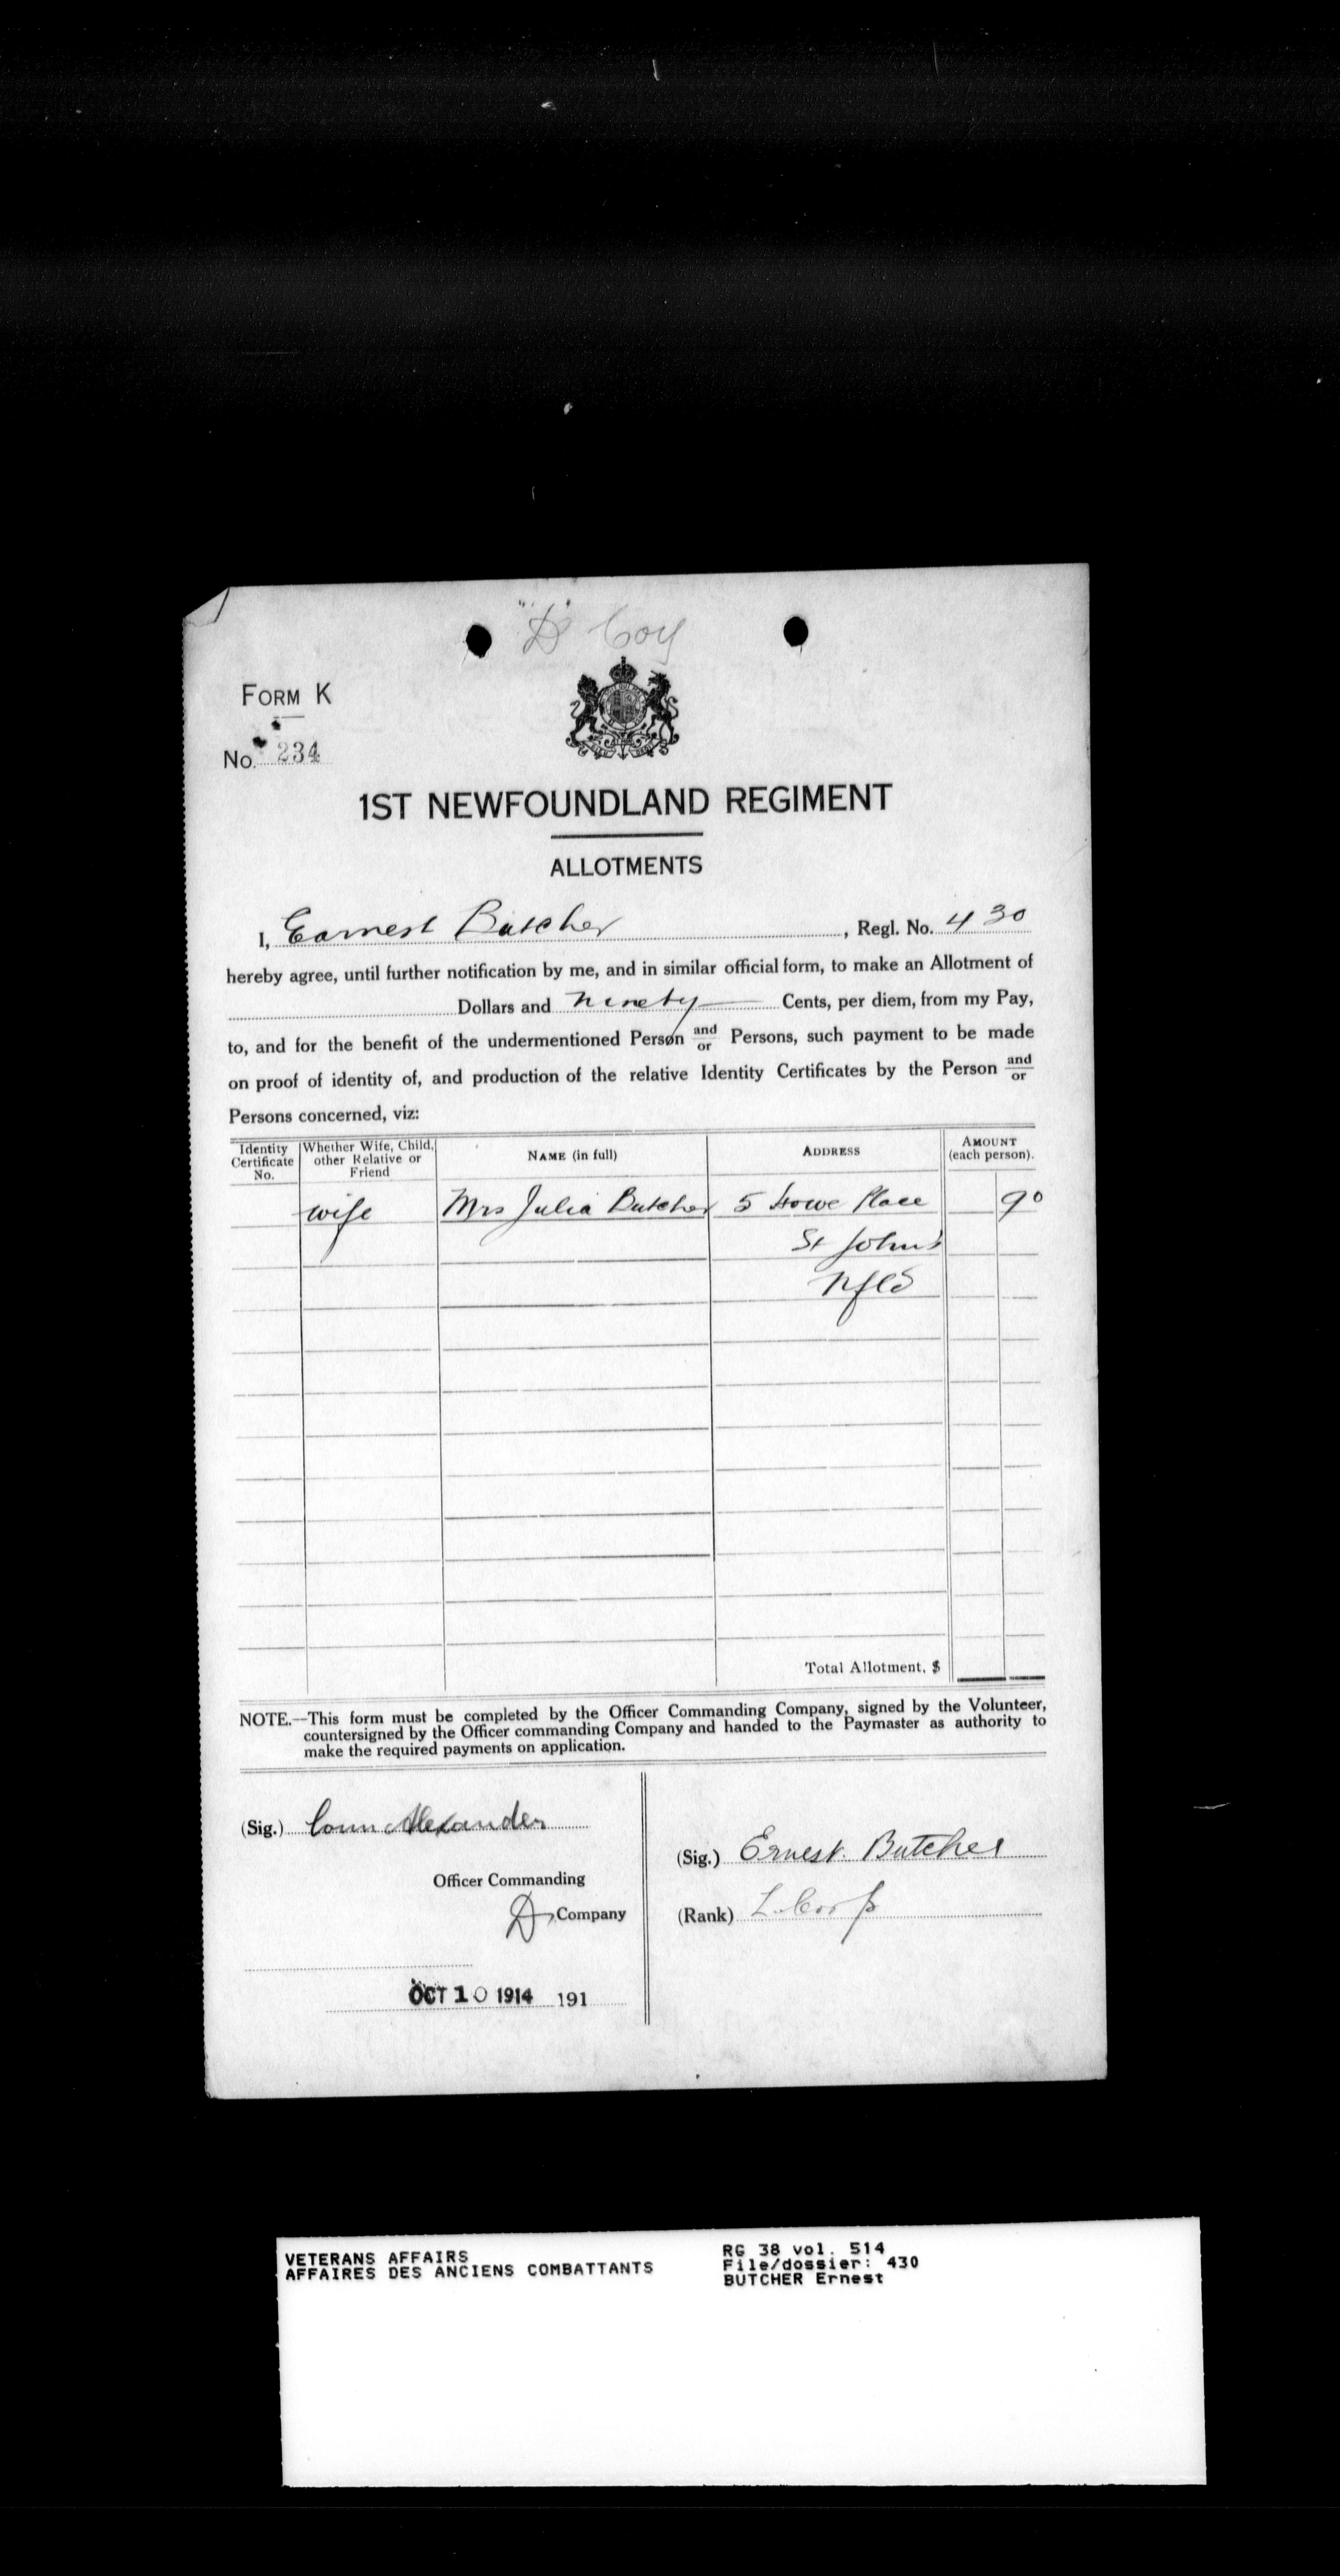 "D" Coy
FORM K
No. 234
1ST NEWFOUNDLAND REGIMENT
ALLOTMENTS
I, Earnest Butcher, Regl. No. 430
hereby agree, until further notification by me, and in similar official form, to make an Allotment of
Dollars and ninety Cents, per diem, from my Pay,
to, and for the benefit of the undermentioned Person and/or Persons, such payment to be made
on proof of identity of, and production of the relative Identity Certificates by the Person and/or
Persons concerned, viz:
Identity Certificate No. Whether Wife, Child, other Relative or Friend NAME (in full) ADDRESS AMOUNT (each person).
wife Mrs Julia Butcher 5 Howe Place 90
St John's
Nfld
Total Allotment, $
NOTE.—This form must be completed by the Officer Commanding Company, signed by the Volunteer,
countersigned by the Officer commanding Company and handed to the Paymaster as authority to
make the required payments on application.
(Sig.) Alexander
Officer Commanding
D Company
OCT 10 1914 191
(Sig.) Ernest. Butcher
(Rank) L. Corp
VETERANS AFFAIRS
AFFAIRES DES ANCIENS COMBATTANTS
RG 38 vol. 514
File/dossier: 430
BUTCHER Ernest